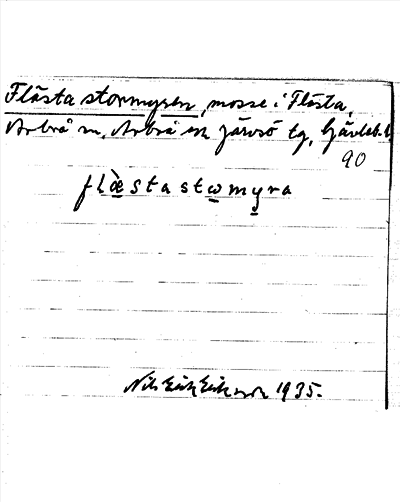 Flästa stormyren, mosse i Flästa,
Arbrå sn, Arbrå sk Järvsö tg, Gävleb. l.
90
flæ̀stastωmyra
Nils Erik Eriksson 1935.